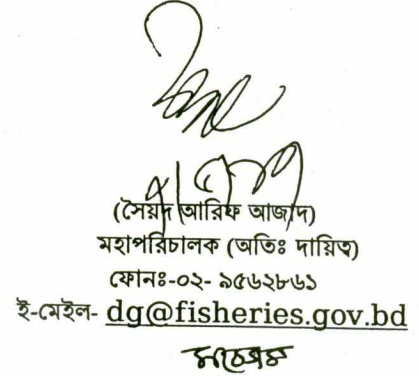 (সৈয়দ আরিফ আজাদ)
মহাপরিচালক (অতিঃ দায়িত্ব)
ফোনঃ-০২- ৯৫৬২৮৬১
ই-মেইল- dg@fisheries.gov.bd